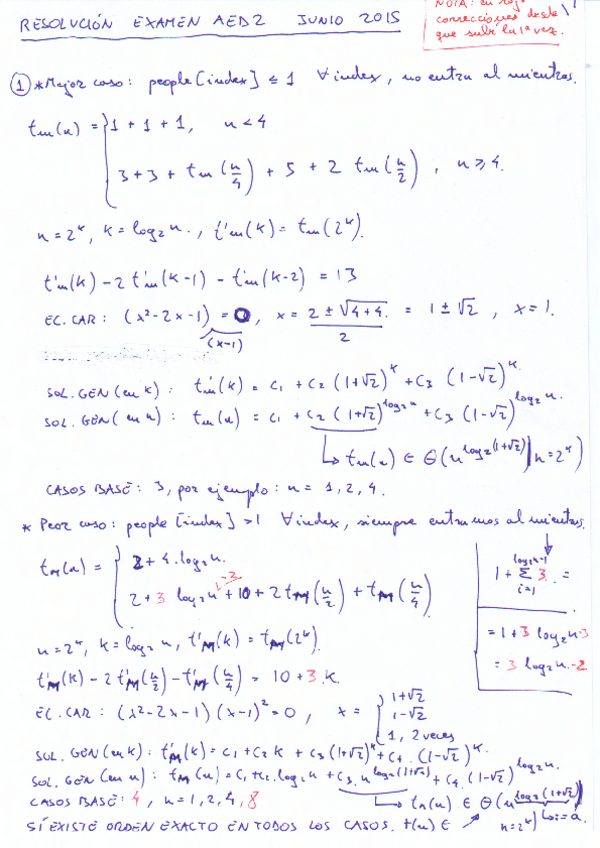 RESOLUCIÓN EXAMEN AED2 JUNIO 2015
NOTA: en rojo
correcciones desde
que subí la 1ª vez.
① * Mejor caso: people[index] ≤ 1 ∀index, no entra al mientras.
tm(n) = { 1 + 1 + 1, n < 4
3 + 3 + tm(n/4) + 5 + 2 tm(n/2), n ≥ 4.
n = 2^k, k = log₂n., t'm(k) = tm(2^k)
t'm(k) - 2 t'm(k-1) - t'm(k-2) = 13
EC. CAR: (x²-2x-1) = 0, x = (2 ± √(4+4))/2 = 1 ± √2, x = 1.
(x-1)
SOL. GEN (en k): t'm(k) = c₁ + c₂ (1+√2)^k + c₃ (1-√2)^k.
SOL. GEN (en n): tm(n) = c₁ + c₂ (1+√2)^log₂n + c₃ (1-√2)^log₂n.
↳ tm(n) ∈ Θ(n^log₂(1+√2) | n=2^k)
CASOS BASE: 3, por ejemplo: n = 1, 2, 4.
* Peor caso: people[index] > 1 ∀index, siempre entramos al mientras.
tM(n) = { 2 + 4·log₂n.
2 + 3 log₂n + 10 + 2tM(n/2) + tM(n/4)
-2
1 + Σ_{i=1}^{log₂n-1} 3 =
= 1 + 3 log₂n-3
= 3 log₂n-2
n = 2^k, k = log₂n, t'M(k) = tM(2^k).
t'M(k) - 2 t'M(n/2) - t'M(n/4) = 10 + 3·k.
EC. CAR: (x²-2x-1) (x-1)² = 0, x = { 1+√2
1-√2
1, 2 veces
SOL. GEN (en k): t'M(k) = c₁ + c₂ k + c₃ (1+√2)^k + c₄ · (1-√2)^k.
SOL. GEN (en n): tM(n) = c₁ + c₂·log₂n + c₃·n^log₂(1+√2) + c₄·(1-√2)^log₂n.
CASOS BASE: 4, n = 1, 2, 4, 8
↳ tM(n) ∈ Θ(n^log₂(1+√2) | n=2^k)
SÍ EXISTE ORDEN EXACTO EN TODOS LOS CASOS. t(n) ∈